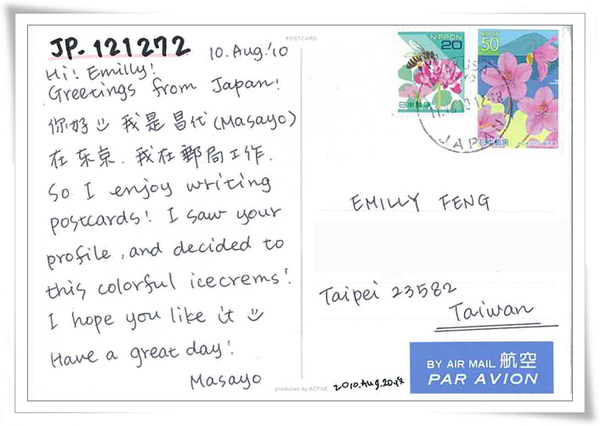 JP-121272
10. Aug.'10
Hi! Emilly!
Greetings from Japan!
你好 我是昌代(Masayo)
在东京. 我在郵局工作.
So I enjoy writing
postcards! I saw your
profile, and decided to
this colorful icecrems!
I hope you like it
Have a great day!
Masayo
POSTCARD
NIPPON
20
日本郵便
50
日本郵便
JAPAN
EMILLY FENG
Taipei 23582
Taiwan
BY AIR MAIL 航空
PAR AVION
produced by ACTIVE
2010.Aug.20